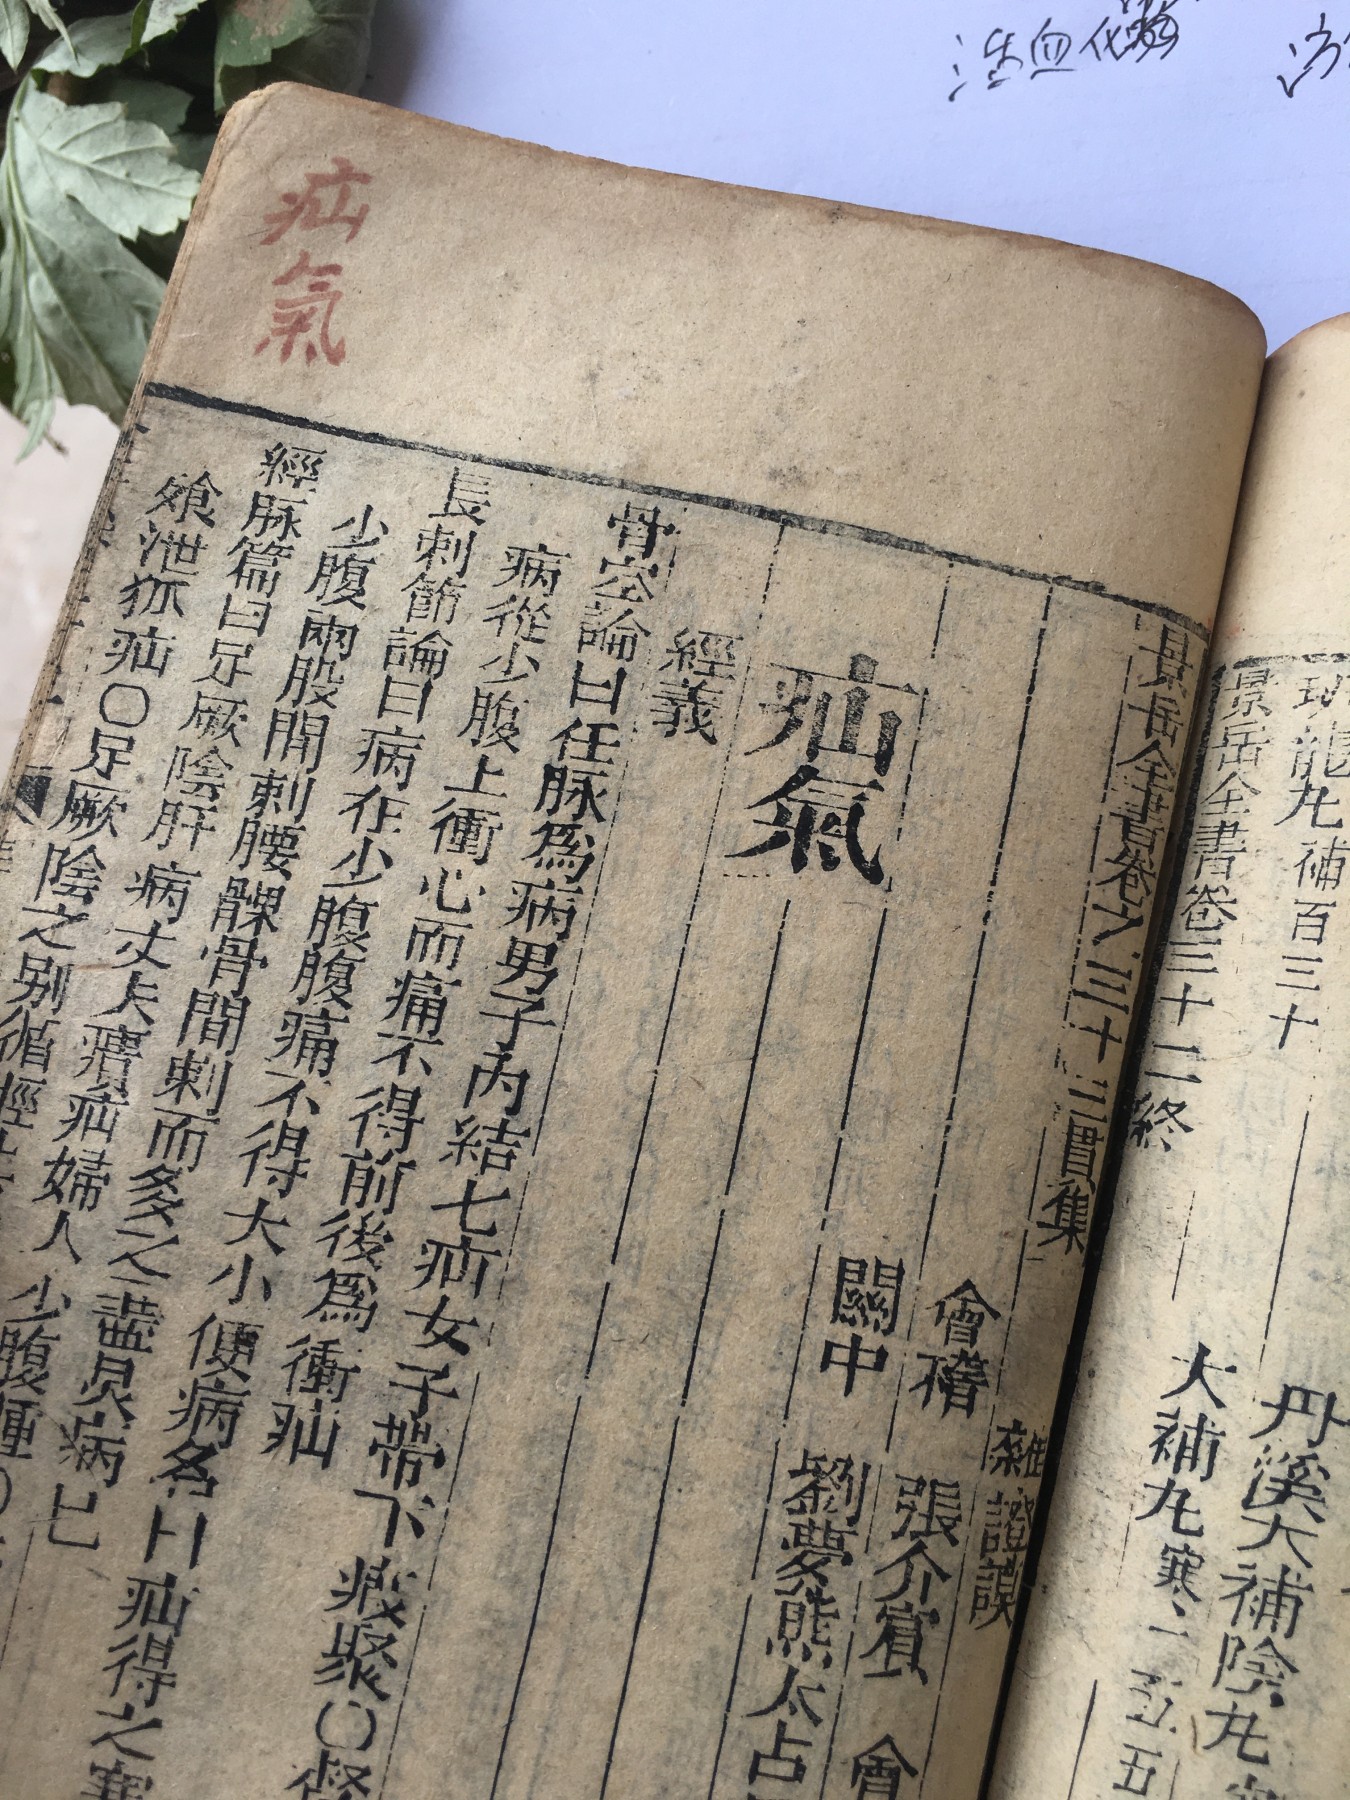 活血化瘀
疝氣
班龍丸補百三十
丹溪大補陰丸
景岳全書卷三十二終
大補丸寒
景岳全書卷之三十三貫集
雜證謨
會稽 張介賓 會
關中 劉夢熊
疝氣
經義
骨空論曰任脉爲病男子內結七疝女子帶下瘕聚〇督
病從少腹上衝心而痛不得前後爲衝疝
長刺節論曰病在少腹腹痛不得大小便病名曰疝得之寒
少腹兩股間刺腰髁骨間刺而多之盡炅病已
經脉篇曰足厥陰肝病丈夫㿗疝婦人少腹腫〇
飧泄狐疝〇足厥陰之别循脛